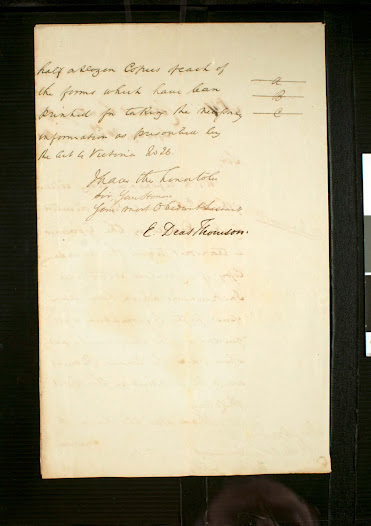 half a dozen Copies of each of
the forms which have been
printed for taking the necessary
information as prescribed by
the Act 4 Victoria No 26.
A
B
C
I have the honor to be
Sir
Your most Obedient Servant
E. Deas Thomson.